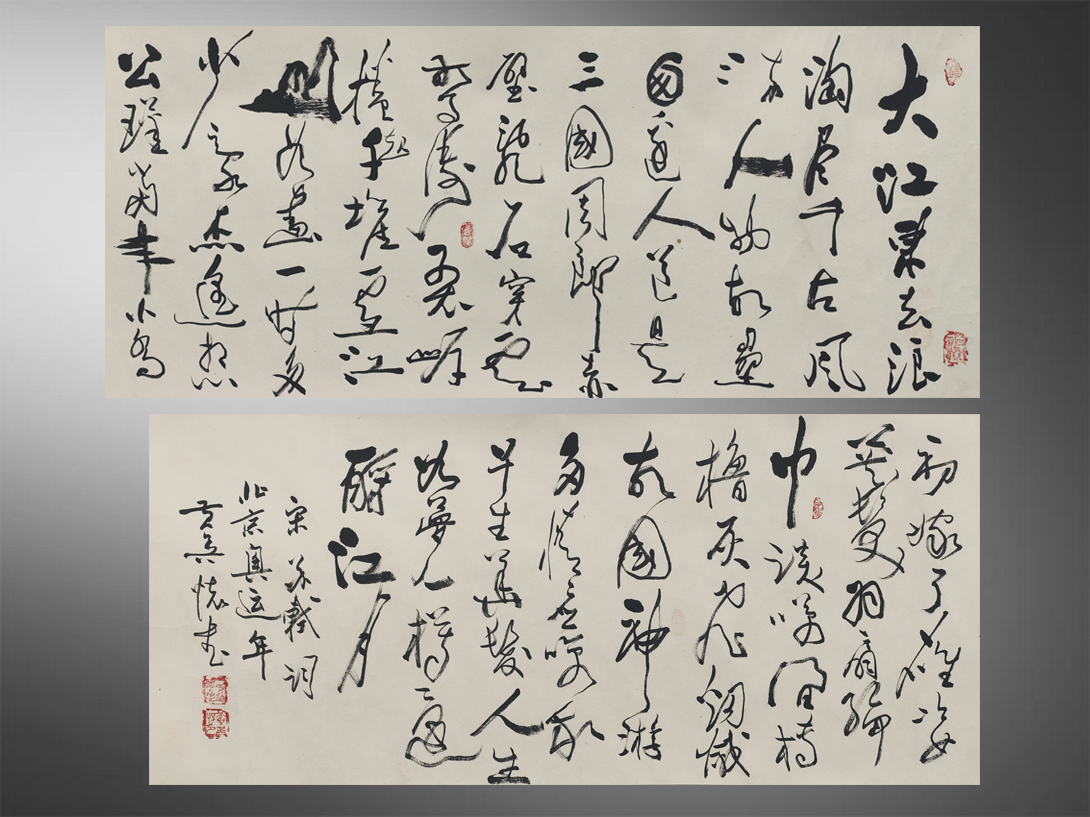 大江東去浪
淘尽千古風
流人物故壘
西邊人道是
三國周郎赤
壁亂石穿空
驚濤裂岸
捲起千堆雪江
山如畫一時多
少豪杰遙想
公瑾當年小喬
初嫁了雄姿
英發羽扇綸
巾談笑間檣
櫓灰飛烟滅
故國神游
多情應笑我
早生華髮人生
如夢一樽還
酹江月
宋蘇軾詞
北京奧運年
懷書